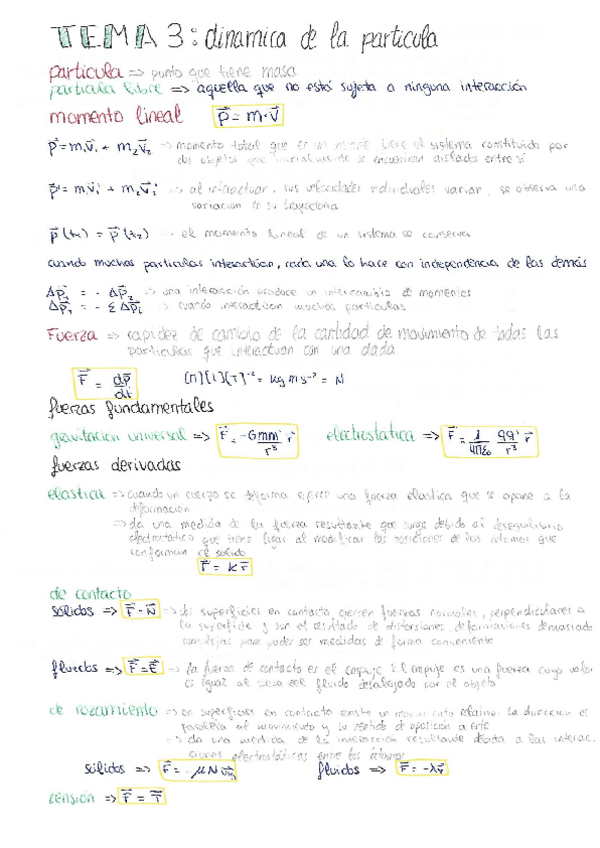 TEMA 3: dinamica de la particula
particula => punto que tiene masa
particula libre => aquella que no está sujeta a ninguna interacción
momento lineal p⃗ = m·v⃗
p⃗ = m₁v⃗₁ + m₂v⃗₂ => momento total que es un instante tiene el sistema constituido por
dos objetos que inicialmente se encuentran aislados entre sí
p⃗' = m₁v⃗₁' + m₂v⃗₂' => al interactuar, sus velocidades individuales varian, se observa una
variacion en su trayectoria
p⃗(t₁) = p⃗(t₂) => el momento lineal de un sistema se conserva
cuando muchas particulas interactúan, cada una lo hace con independencia de las demás
Δp⃗₁ = - Δp⃗₂ => una interacción produce un intercambio de momentos
Δp⃗₁ = - Σ Δp⃗ᵢ => cuando interactuan muchas particulas
Fuerza => rapidez de cambio de la cantidad de movimiento de todas las
particulas que interactuan con una dada
F⃗ = dp⃗/dt [M][L][T]⁻² = kg m s⁻² = N
fuerzas fundamentales
gravitacion universal => F⃗ = -Gmm'/r³ r⃗ electrostatica => F⃗ = 1/4πε₀ qq'/r³ r⃗
fuerzas derivadas
elastica => cuando un cuerpo se deforma ejerce una fuerza elastica que se opone a la
deformacion
=> da una medida de la fuerza resultante que surge debido al desequilibrio
electrostatico que tiene lugar al modificar las posiciones de los atomos que
conforman el solido
F⃗ = k r⃗
de contacto
sólidos => F⃗ = N⃗ => dos superficies en contacto, ejercen fuerzas normales, perpendiculares a
la superficie y son el resultado de distorsiones, deformaciones demasiado
complejas para poder ser medidas de forma conveniente
fluidos => F⃗ = E⃗ => la fuerza de contacto es el empuje. El empuje es una fuerza cuyo valor
es igual al peso del fluido desalojado por el objeto
de rozamiento => en superficies en contacto existe un movimiento relativo. La direccion es
paralela al movimiento y su sentido de oposición a este
=> da una medida de la interacción resultante debida a las interac.
ciones electrostáticas entre los átomos
sólidos => F⃗ = -μN fluidos => F⃗ = -λv⃗
tensión => F⃗ = T⃗